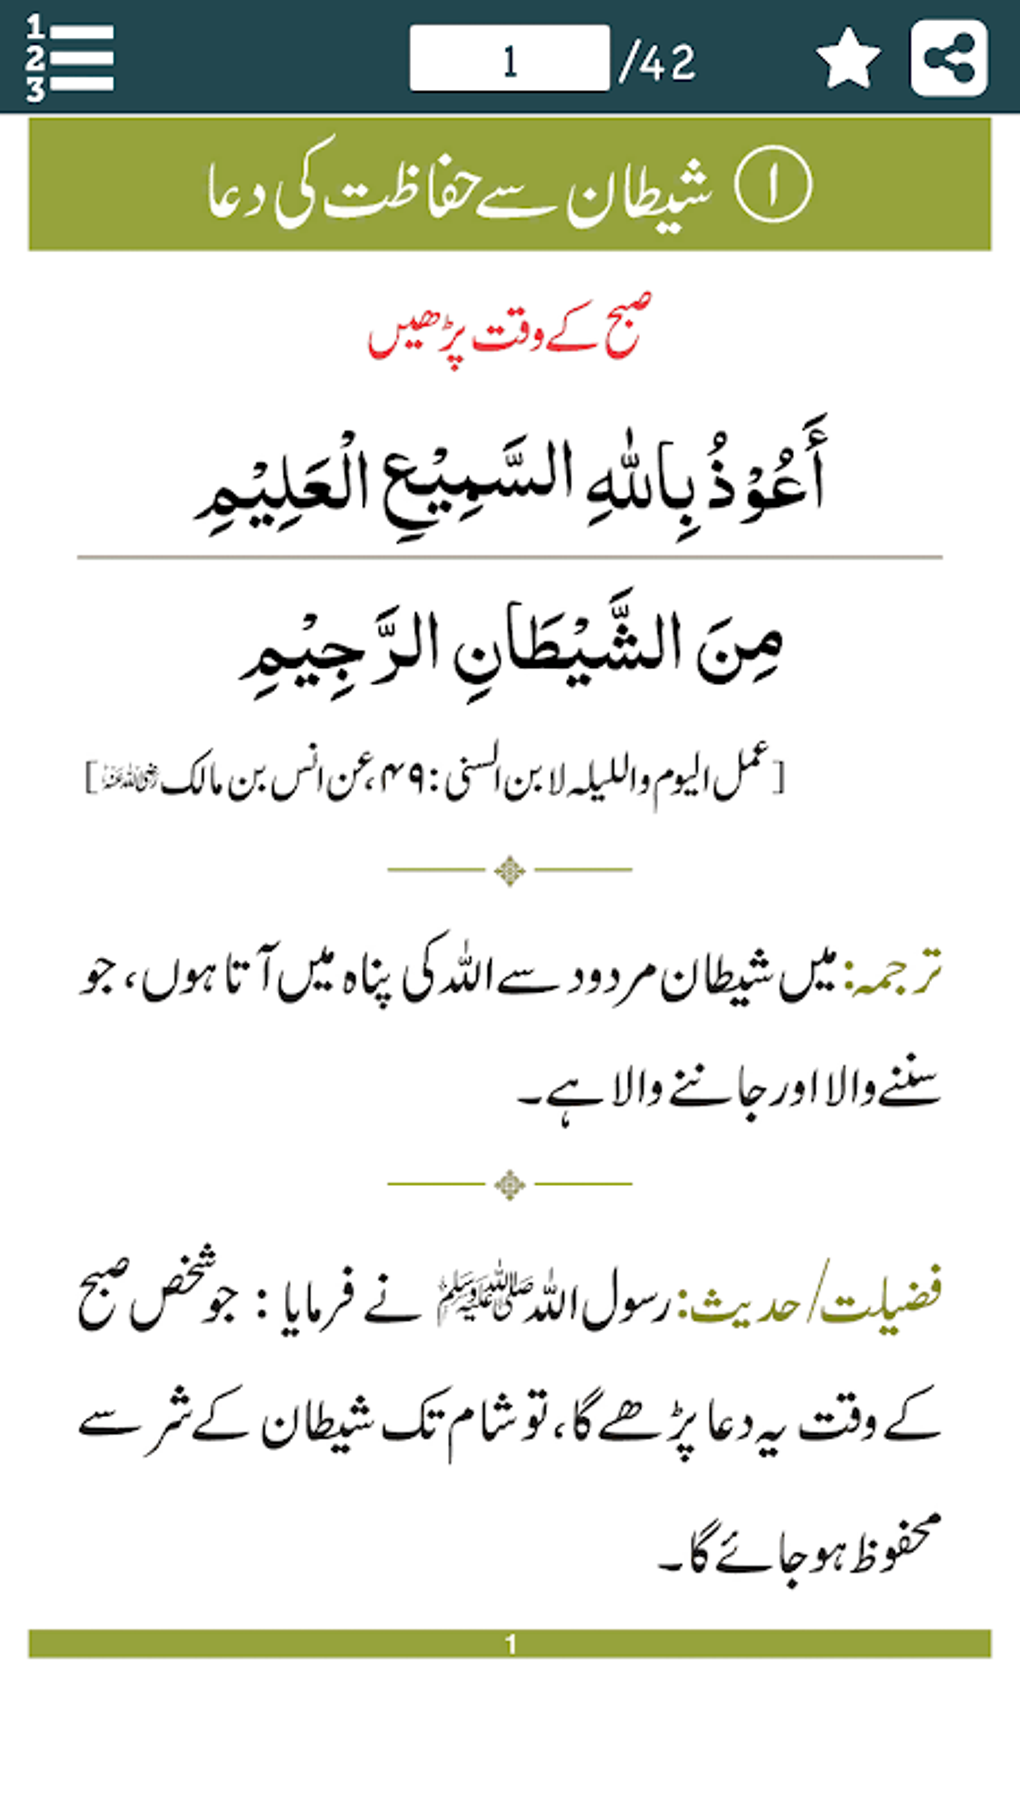 1
2
3
1 /42
۱ شیطان سے حفاظت کی دعا
صبح کے وقت پڑھیں
أَعُوْذُ بِاللّٰهِ السَّمِيْعِ الْعَلِيْمِ
مِنَ الشَّيْطَانِ الرَّجِيْمِ
[عمل الیوم واللیلہ لابن السنی: ۴۹، عن انس بن مالک رضی اللہ عنہ]
ترجمہ: میں شیطان مردود سے اللہ کی پناہ میں آتا ہوں، جو
سننے والا اور جاننے والا ہے۔
فضیلت/حدیث: رسول اللہ ﷺ نے فرمایا: جو شخص صبح
کے وقت یہ دعا پڑھے گا، تو شام تک شیطان کے شر سے
محفوظ ہو جائے گا۔
1